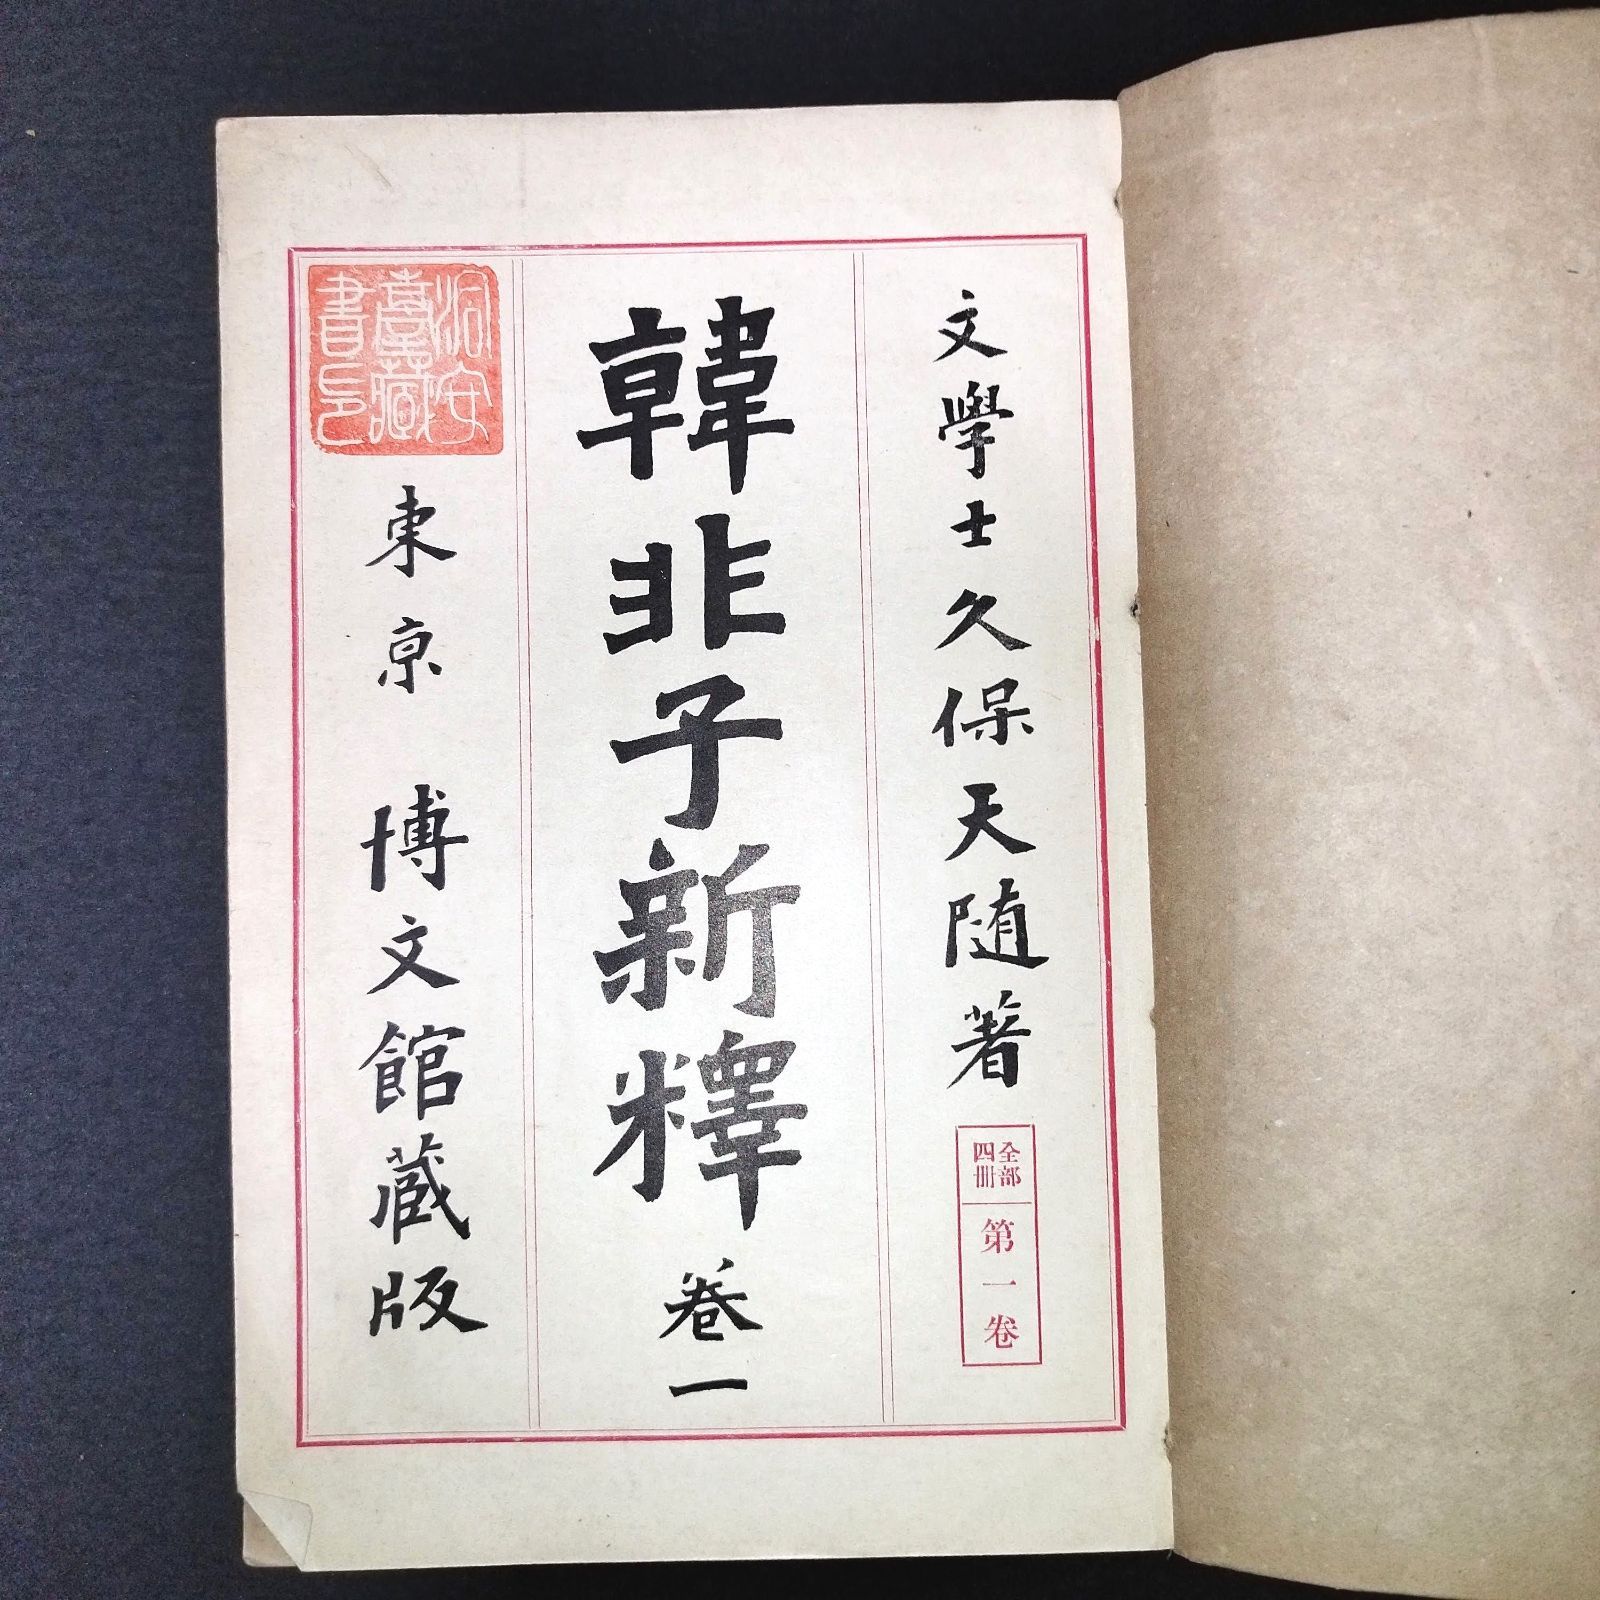 文學士久保天随著
全部
四冊
第一卷
韓非子新釋 卷一
安
臺藏
書印
東京 博文館蔵版